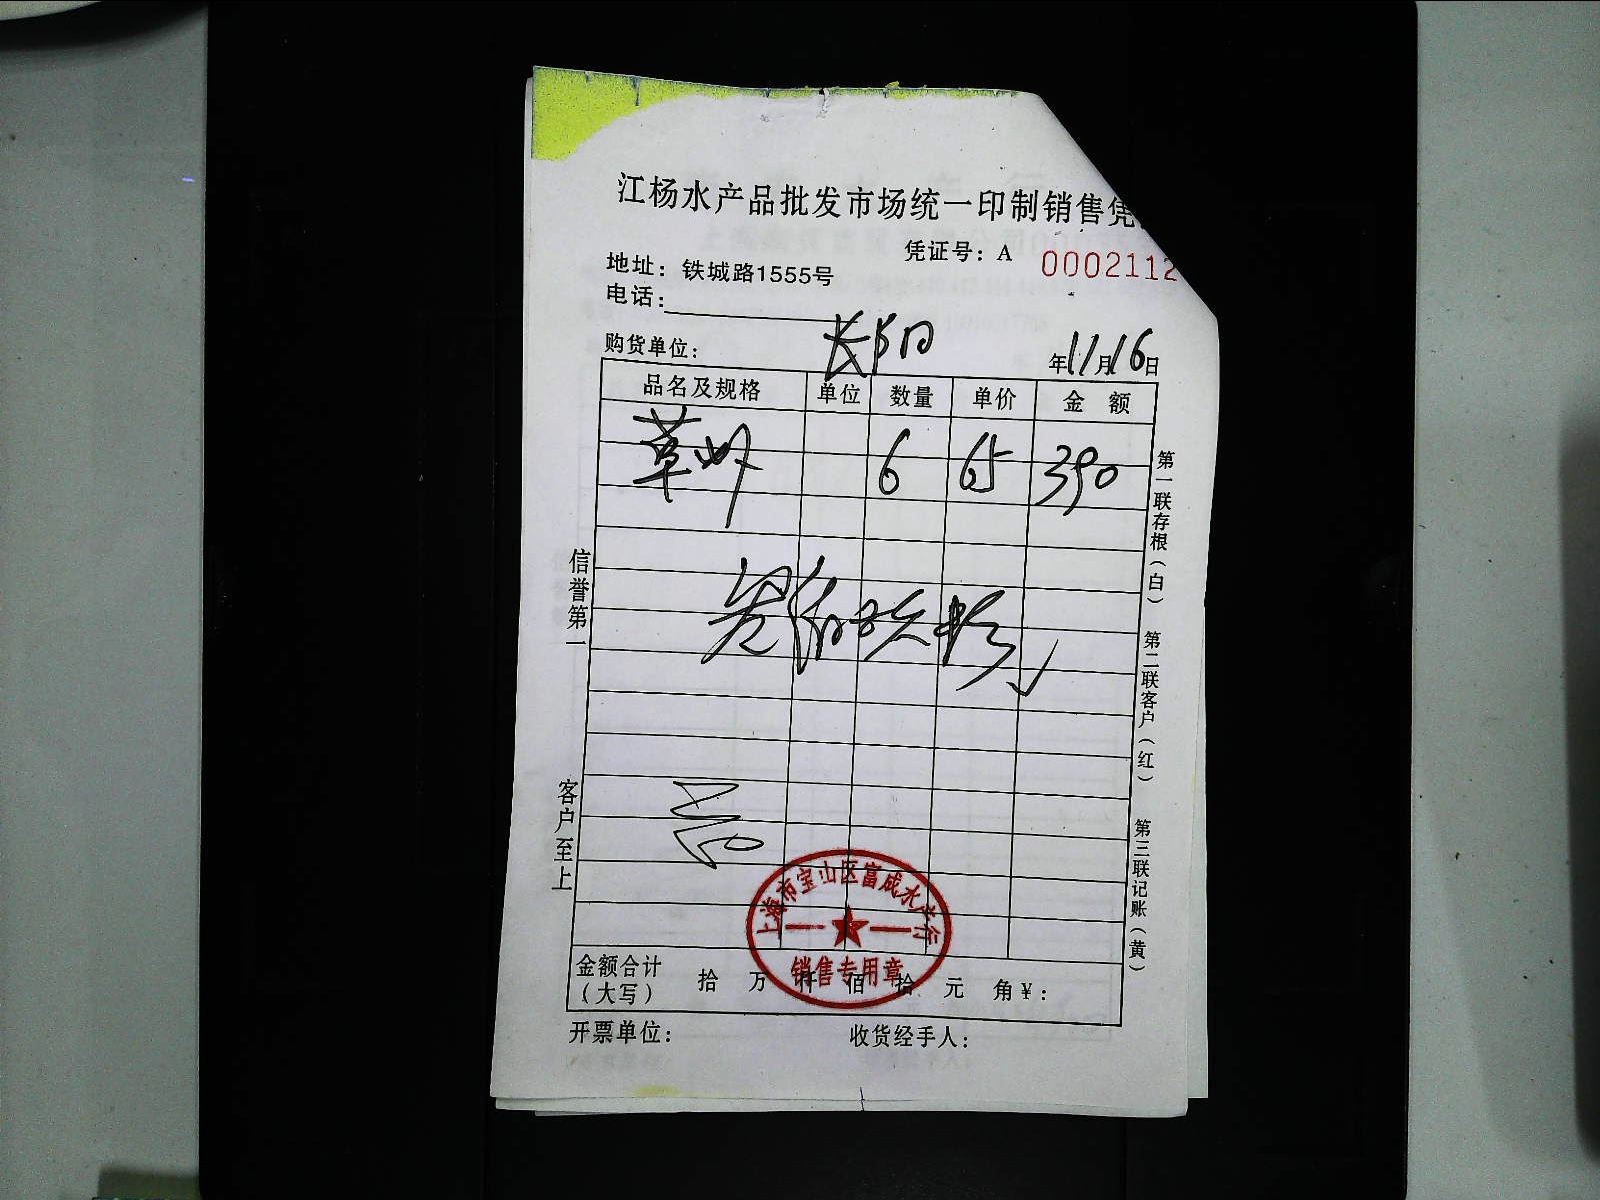 江杨水产品批发市场统一印制销售凭
凭证号：A 0002112
地址：铁城路1555号
电话：
购货单位： 年11月16日
品名及规格 单位 数量 单价 金 额
草虾 6 65 390
信誉第一
客户至上
第一联存根（白）
第二联客户（红）
第三联记账（黄）
上海市宝山区富成水产行
销售专用章
金额合计（大写） 拾 万 仟 佰 拾 元 角 ¥：
开票单位： 收货经手人：